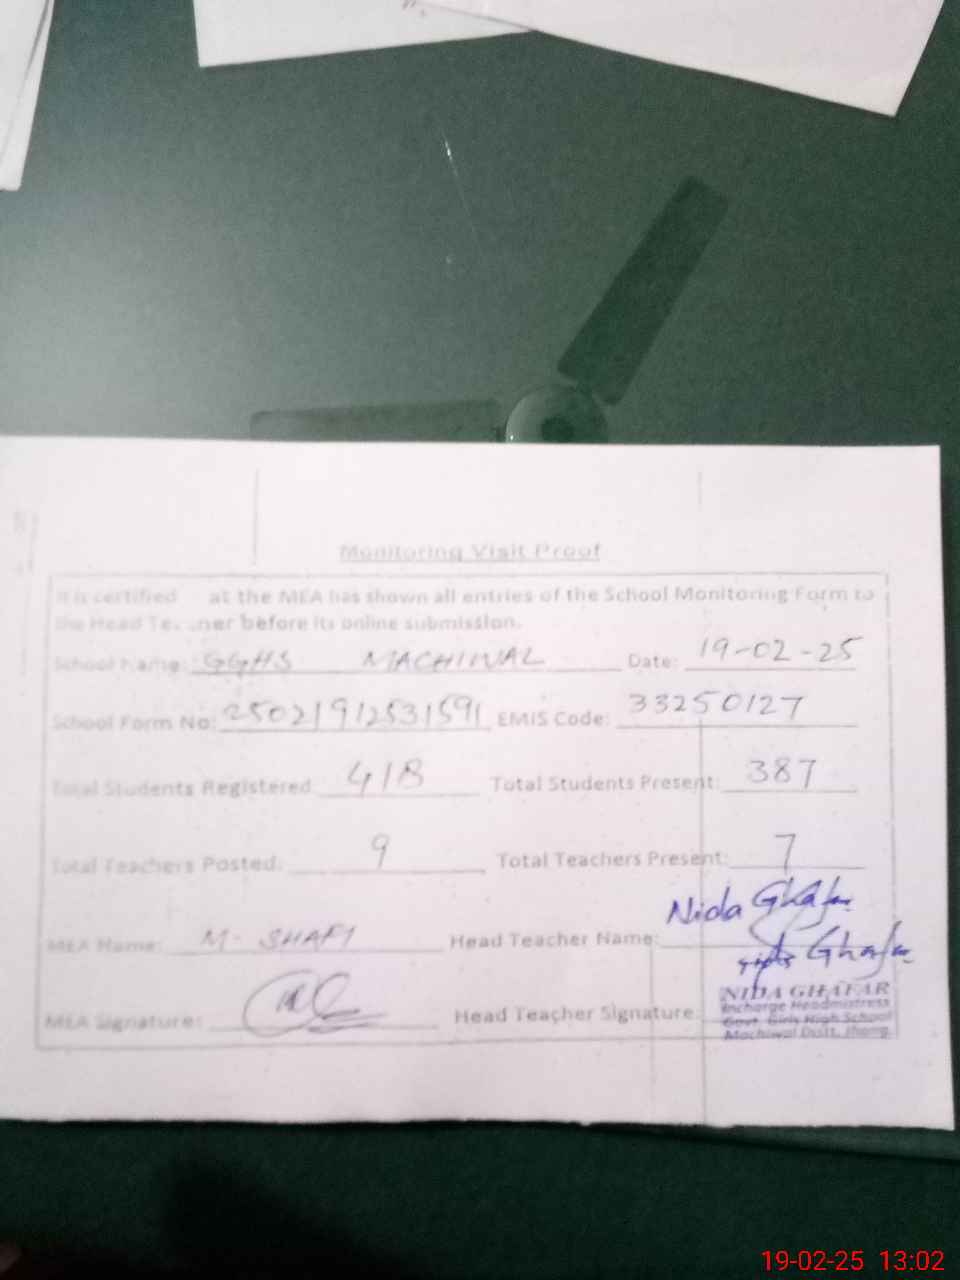 Monitoring Visit Proof
It is certified at the MEA has shown all entries of the School Monitoring Form to
the Head Te ner before its online submission.
School Name: GGHS MACHIWAL Date: 19-02-25
School Form No: 25021912531591 EMIS Code: 33250127
Total Students Registered: 418 Total Students Present: 387
Total Teachers Posted: 9 Total Teachers Present: 7
MEA Name: M. SHAFI Head Teacher Name: Nida Ghafar
Ghafar
MEA Signature: Head Teacher Signature:
NIDA GHAFAR
Incharge Headmistress
Govt. Girls High School
Machiwal Distt. Jhang
19-02-25 13:02